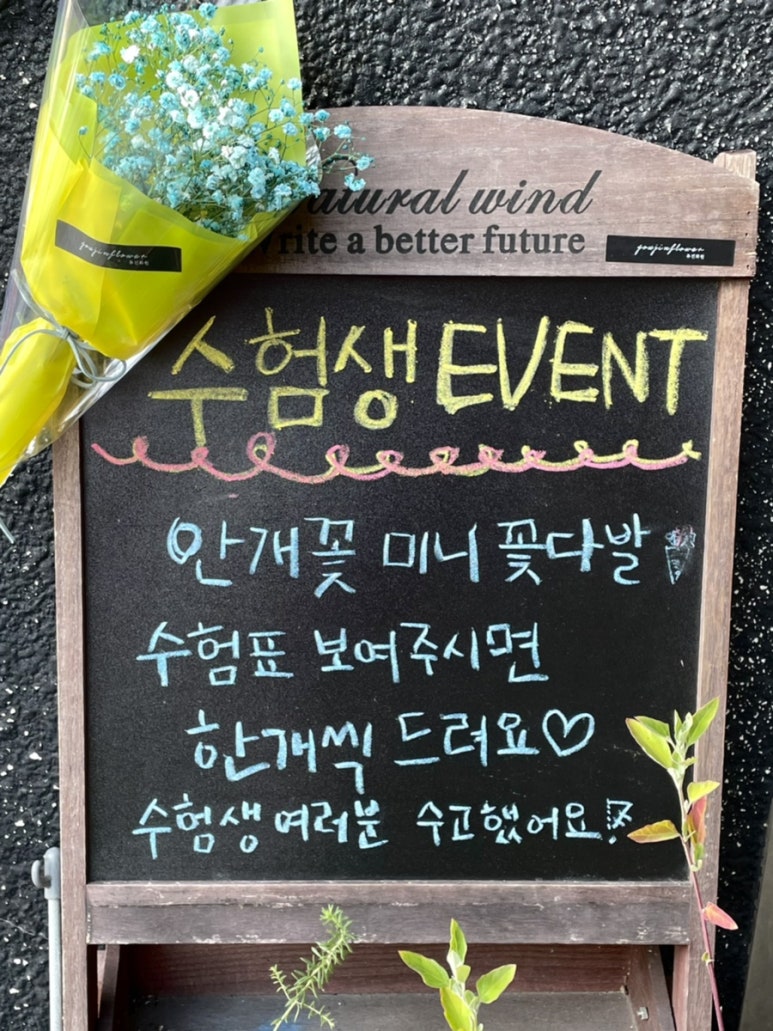 natural wind
write a better future
수험생 EVENT
안개꽃 미니 꽃다발
수험표 보여주시면
한개씩 드려요♡
수험생 여러분 수고했어요!